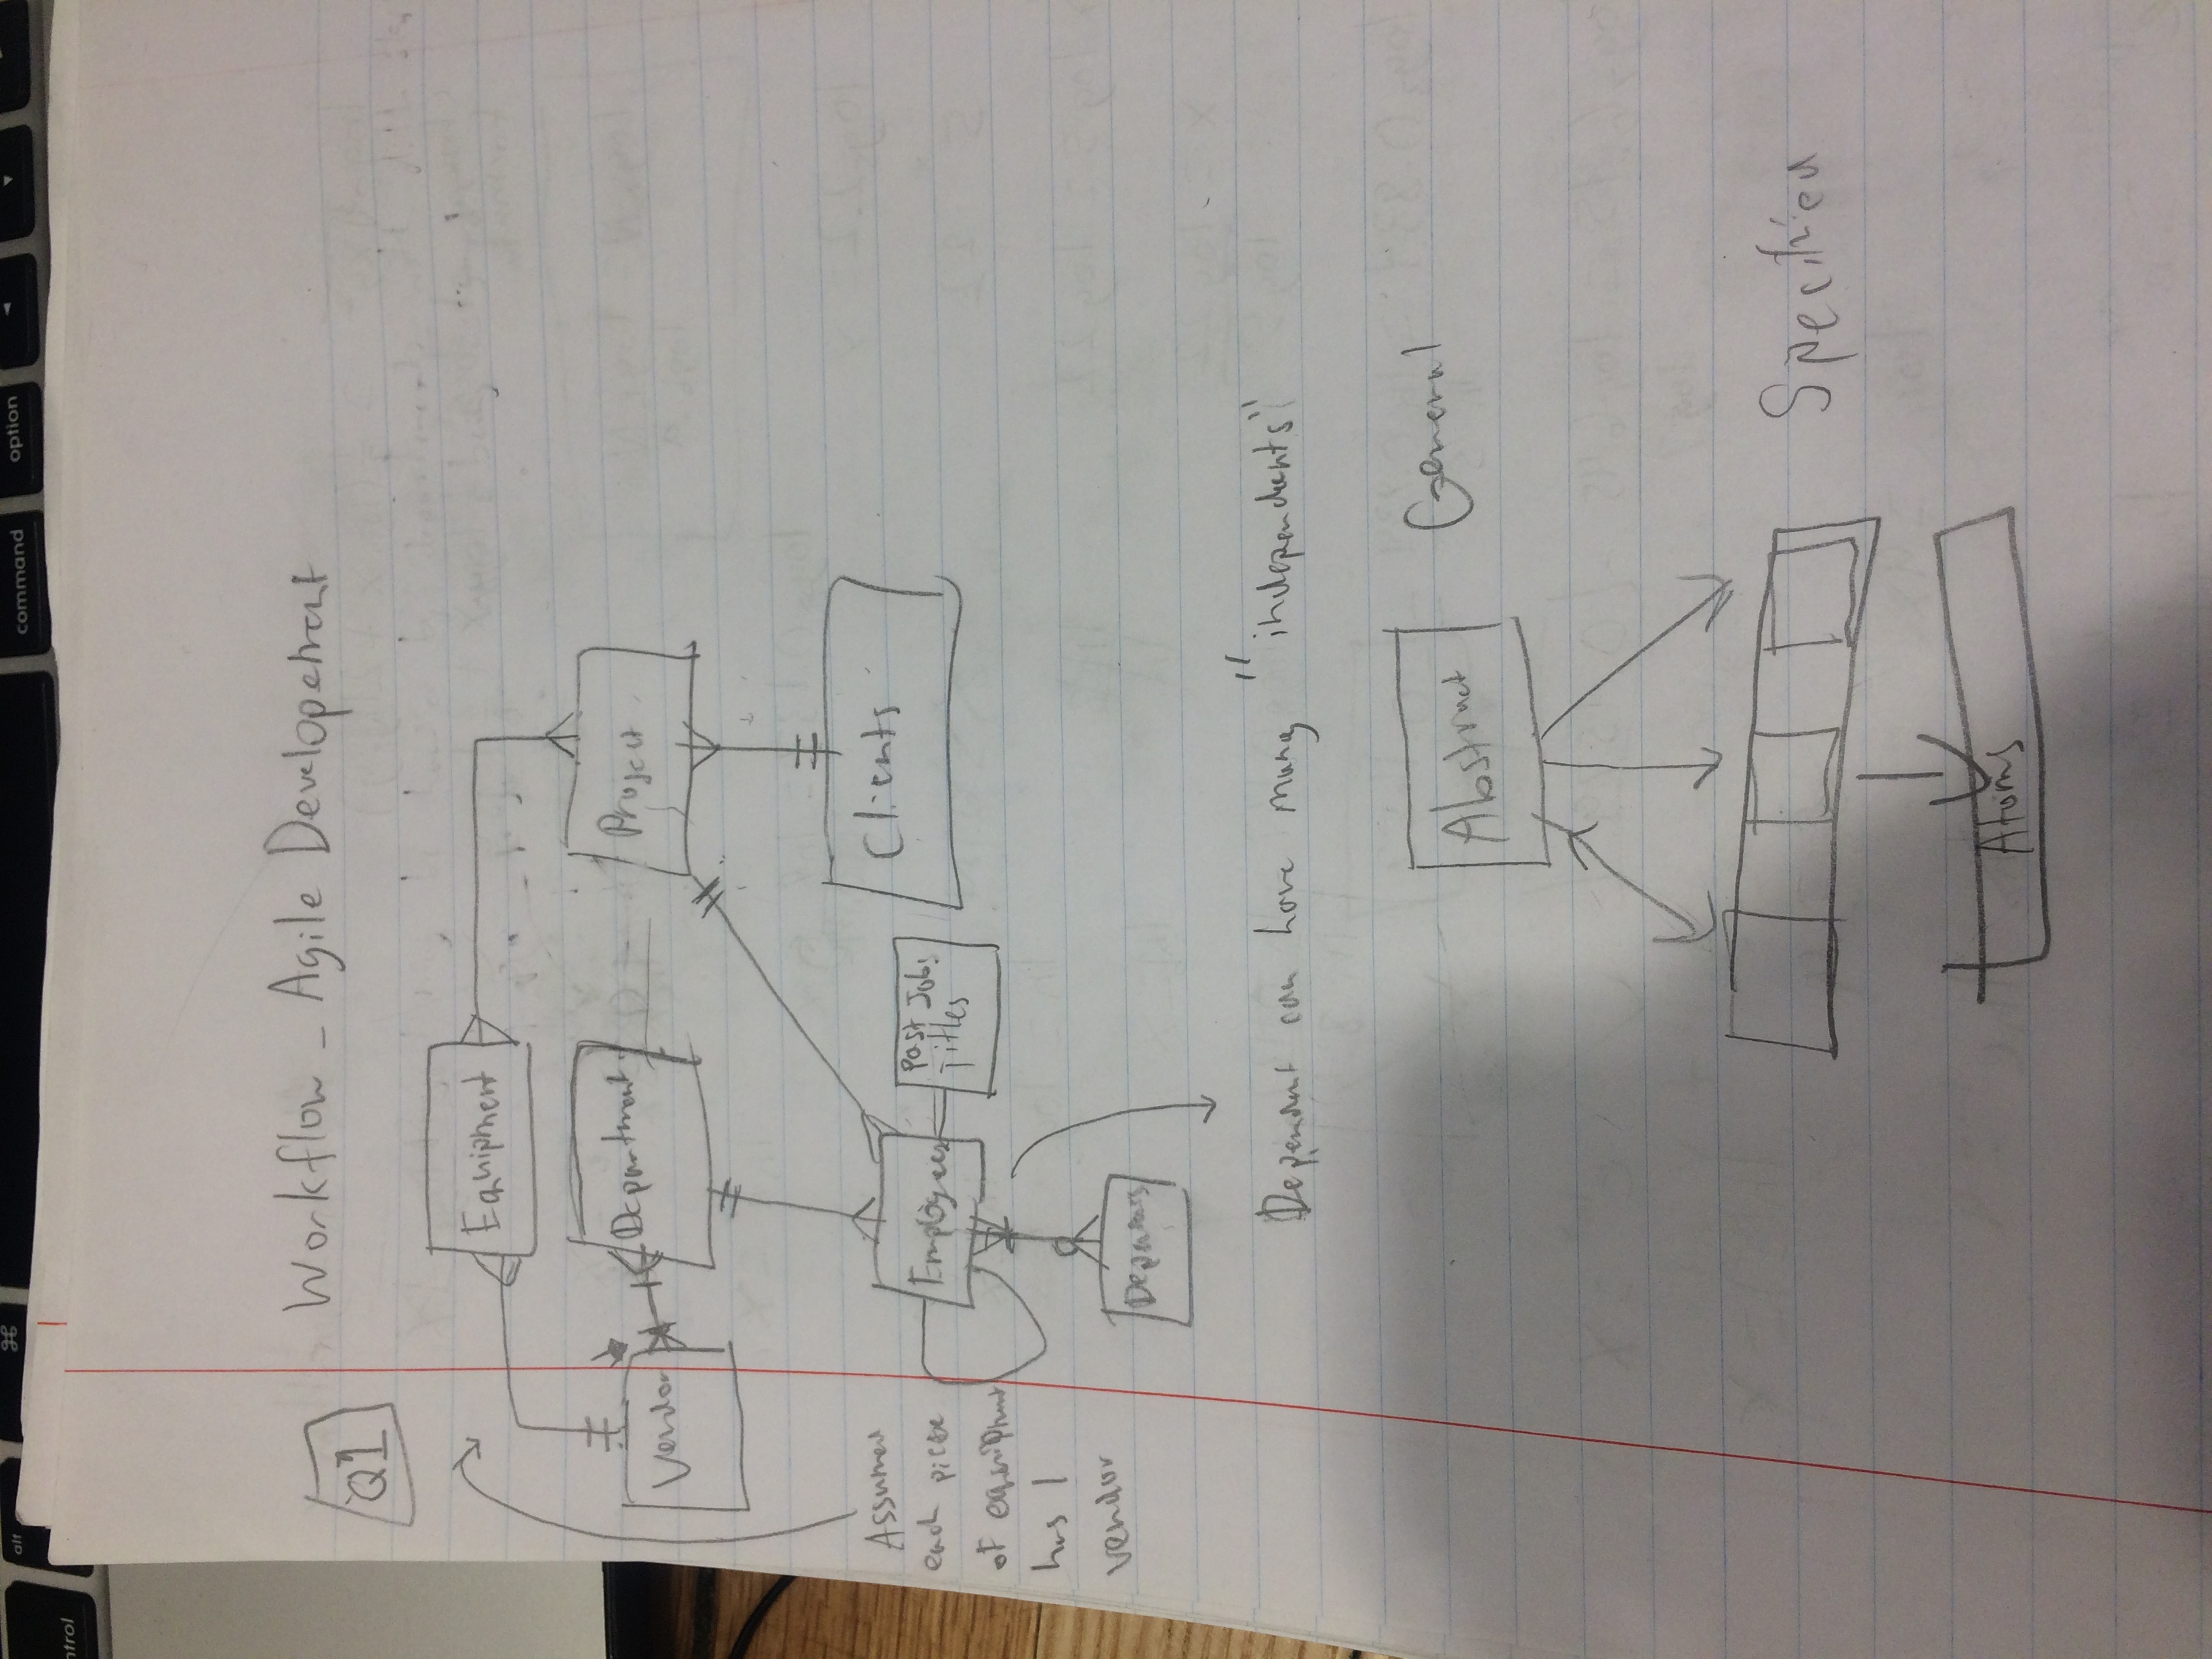 alt
⌘
command
option
◄
▼
ntrol
Workflow - Agile Developement
Q1
Equipment
Department
Project
Vendor
Clients
Employees
Past Job
Titles
Assumed
each piece
of equipment
has 1
vendor
Dependent can have many "independents"
Abstract
General
Atoms